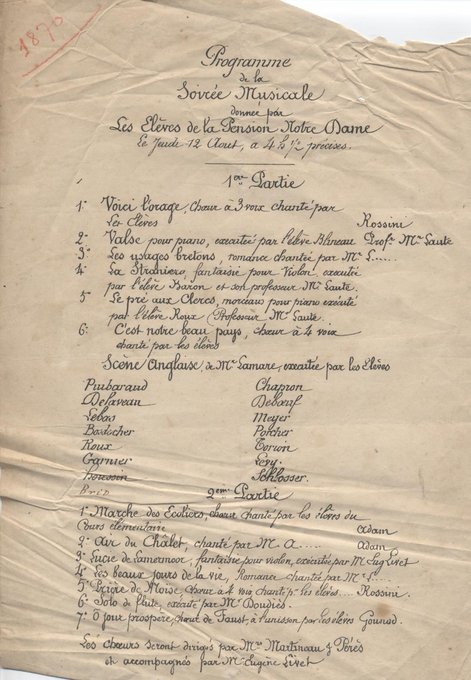 1870
Programme
de la
Soirée Musicale
donnée par
Les Elèves de la Pension Notre Dame
Le Jeudi 12 Aout, a 4 h ½ précises.
1ère Partie
1° Voici l'orage, chœur à 3 voix chanté par
Les Elèves Rossini
2° Valse pour piano, exécutée par l'élève Blineau Profr Mr Lauté
3° Les usages bretons, romance chantée par M. L.....
4° La Straniera, fantaisie pour Violon, exécutée
par l'élève Baron et son professeur Mr Lauté.
5° Le pré aux Clercs, morceau pour piano exécuté
par l'élève Roux (Professeur Mr Lauté.
6° C'est notre beau pays, chœur à 4 voix
chanté par les élèves
Scène Anglaise, de Mr Lamare, exécutée par les Elèves
Pinbaraud Chapron
Delaveau Debœuf
Lebas Meyer
Bosdecher Porcher
Roux Torvon
Garnier Lévy
Poussin Schlosser.
Brin
2eme Partie
1° Marche des Ecoliers, chœur chanté par les élèves du
Cours élémentaire Adam
2° Air du Châlet, chanté par M. A..... Adam
3° Lucie de Lamermoor, fantaisie pour violon, exécutée par M. Eug Livet
4° Les beaux jours de la vie, Romance chantée par M. L....
5° Prière de Moïse Chœur a 4 voix chanté pr les élèves.... Rossini.
6° Solo de flute, exécuté par M. Doudiès.
7° O jour prospère, chœur de Faust, a l'unisson par les élèves Gounod.
Les chœurs seront dirigés par Mrs Martineau & Pérès
et accompagnés par Mr Eugène Livet